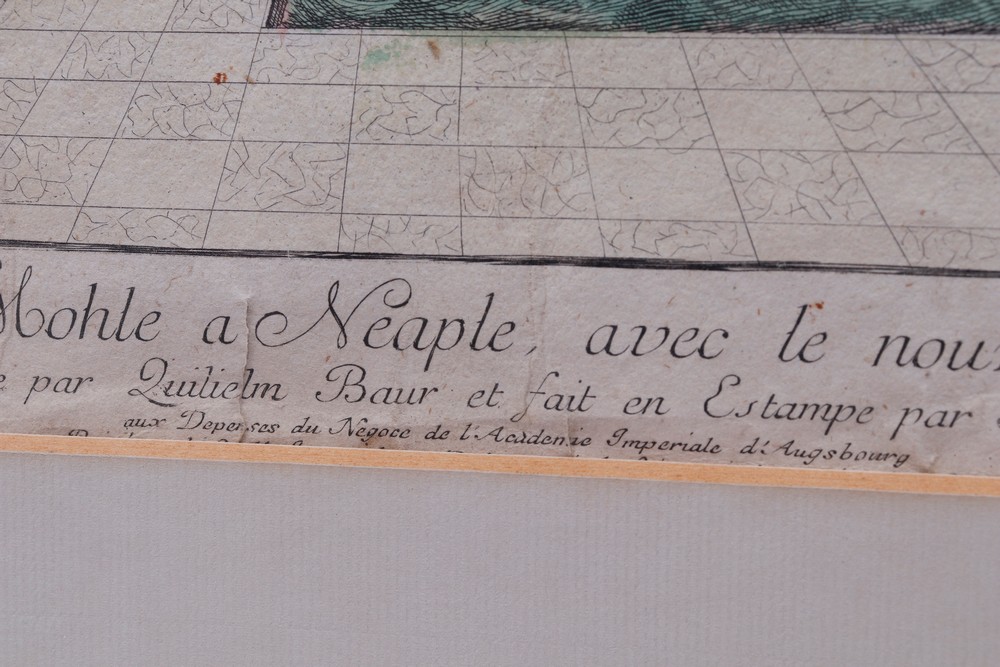 Mohle a Neaple, avec le nou
e par Quilielm Baur et fait en Estampe par
aux Depenses du Negoce de l'Academie Imperiale d'Augsbourg